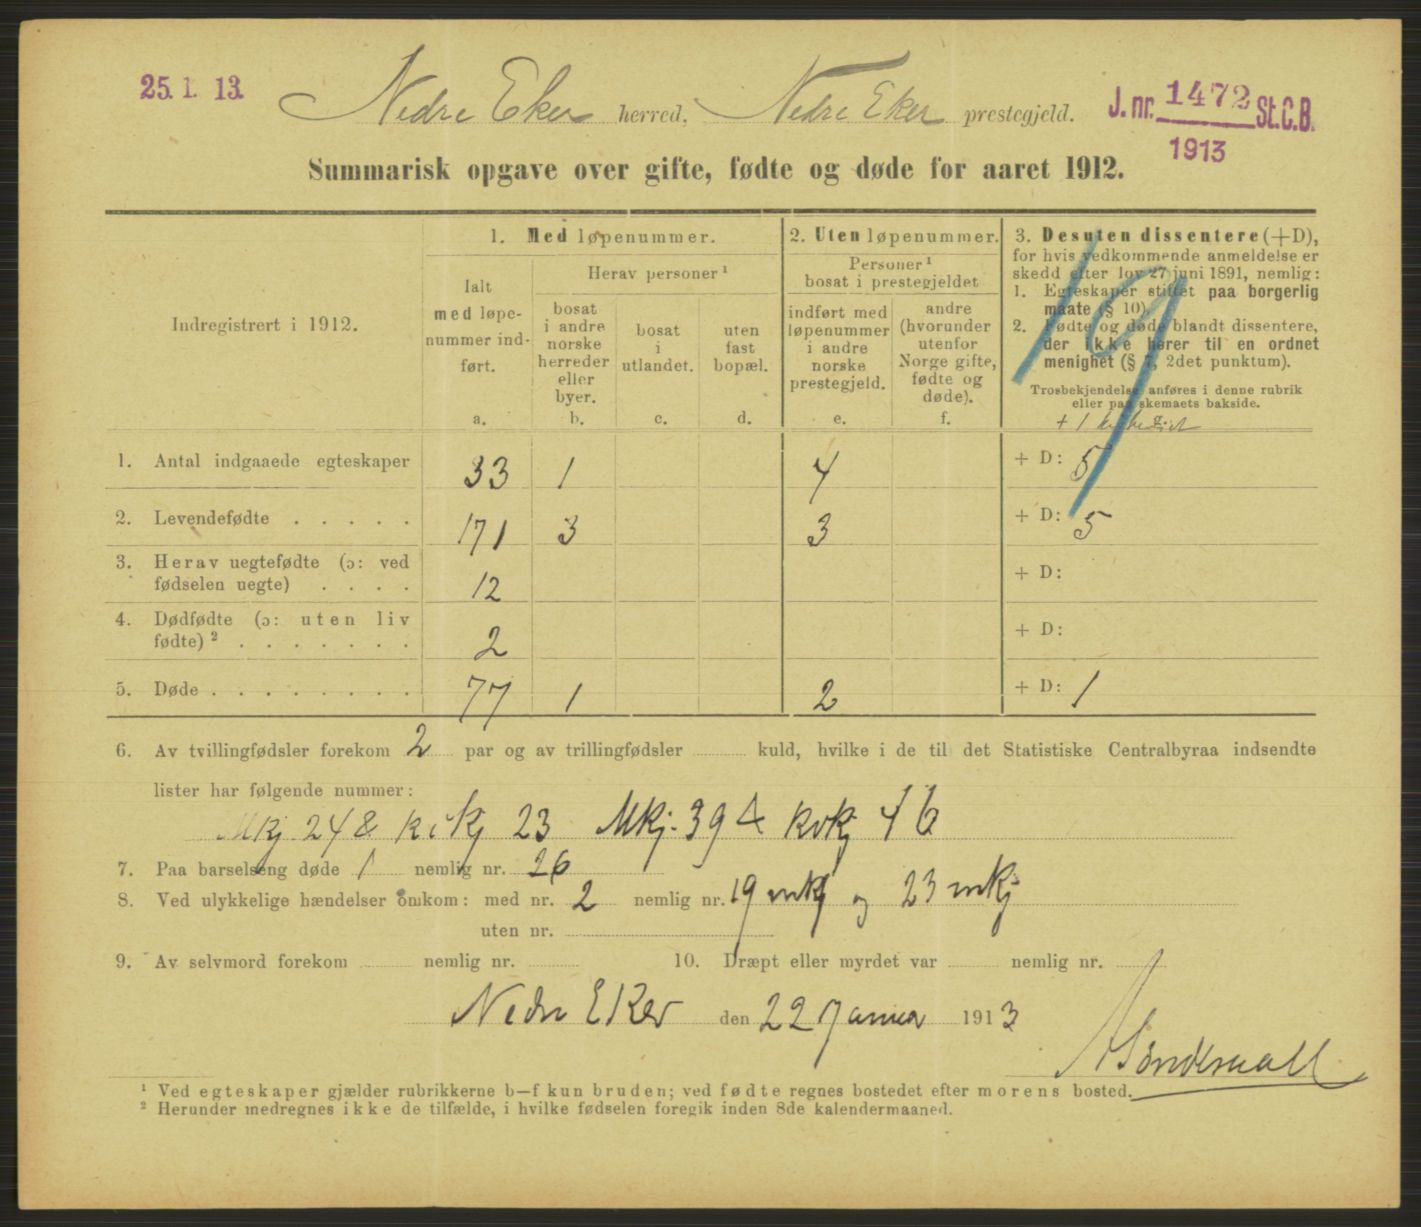 25. 1. 13.
Nedre Eker herred, Nedre Eker prestegjeld.
J. nr. 1472 St. C. B.
1913
Summarisk opgave over gifte, fødte og døde for aaret 1912.
Indregistrert i 1912.
1. Med løpenummer.
Ialt
med løpe-
nummer ind-
ført.
a.
Herav personer ¹
bosat
i andre
norske
herreder
eller
byer.
b.
bosat
i
utlandet.
c.
uten
fast
bopæl.
d.
2. Uten løpenummer.
Personer ¹
bosat i prestegjeldet
indført med
løpenummer
i andre
norske
prestegjeld.
e.
andre
(hvorunder
utenfor
Norge gifte,
fødte og
døde).
f.
3. Desuten dissentere (+D),
for hvis vedkommende anmeldelse er
skedd efter lov 27 juni 1891, nemlig:
1. Egteskaper stiftet paa borgerlig
maate (§ 10).
2. Fødte og døde blandt dissentere,
der ikke hører til en ordnet
menighet (§ 7, 2det punktum).
Trosbekjendelse anføres i denne rubrik
eller paa skemaets bakside.
19
+ 1
1. Antal indgaaede egteskaper 33 1 4 + D: 5
2. Levendefødte . . . . . 171 3 3 + D: 5
3. Herav uegtefødte (ɔ: ved
fødselen uegte) . . . . 12 + D:
4. Dødfødte (ɔ: uten liv
fødte) ² . . . . . . . 2 + D:
5. Døde . . . . . . . . . 77 1 2 + D: 1
6. Av tvillingfødsler forekom 2 par og av trillingfødsler kuld, hvilke i de til det Statistiske Centralbyraa indsendte
lister har følgende nummer:
Mkj 24 & kvkj 23 Mkj. 39 & kvkj 46
7. Paa barselseng døde 1 nemlig nr. 26
8. Ved ulykkelige hændelser omkom: med nr. 2 nemlig nr. 19 mkj og 23 mkj
uten nr.
9. Av selvmord forekom nemlig nr. 10. Dræpt eller myrdet var nemlig nr.
Nedre Eker den 22 Januar 1913
¹ Ved egteskaper gjælder rubrikkerne b—f kun bruden; ved fødte regnes bostedet efter morens bosted.
² Herunder medregnes ikke de tilfælde, i hvilke fødselen foregik inden 8de kalendermaaned.